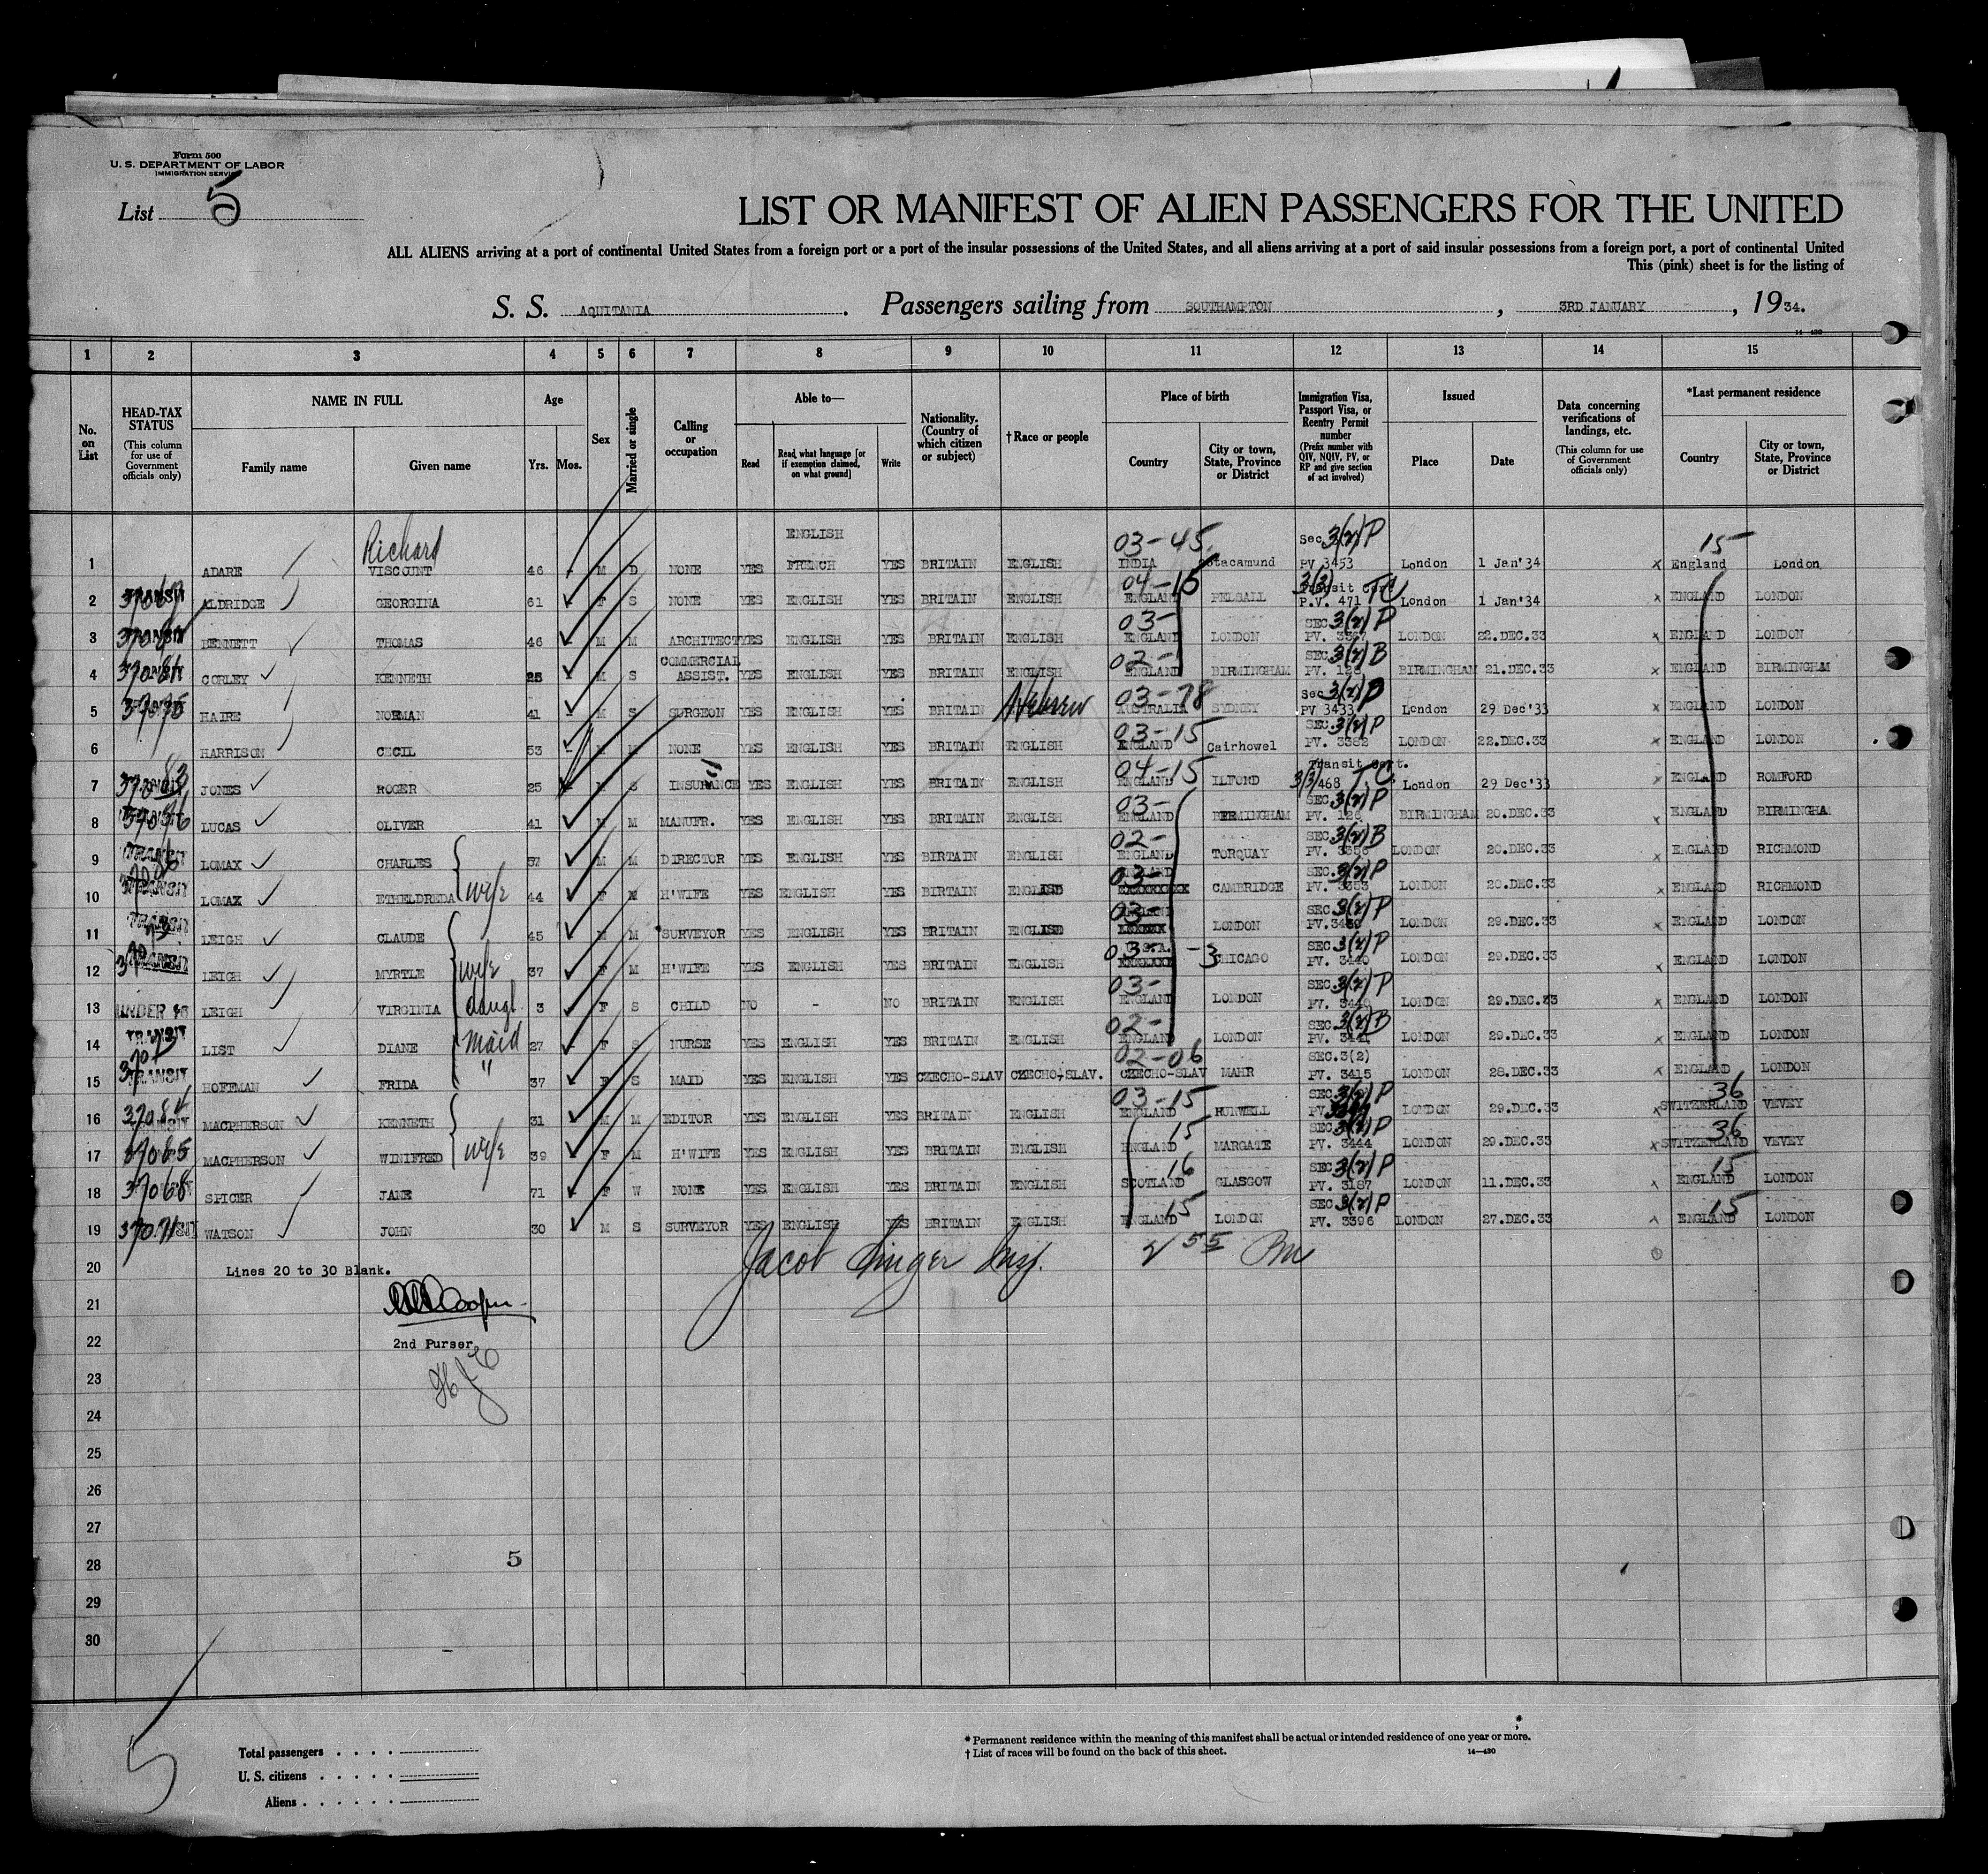 Form 500
U. S. DEPARTMENT OF LABOR
IMMIGRATION SERVICE
List 5
LIST OR MANIFEST OF ALIEN PASSENGERS FOR THE UNITED
ALL ALIENS arriving at a port of continental United States from a foreign port or a port of the insular possessions of the United States, and all aliens arriving at a port of said insular possessions from a foreign port, a port of continental United
This (pink) sheet is for the listing of
S. S. AQUITANIA. Passengers sailing from SOUTHAMPTON, 3RD JANUARY, 1934.
14-430
1 2 3 4 5 6 7 8 9 10 11 12 13 14 15
No. on List
HEAD-TAX STATUS (This column for use of Government officials only)
NAME IN FULL Family name Given name
Age Yrs. Mos.
Sex
Married or single
Calling or occupation
Able to— Read Read, what language [or if exemption claimed, on what ground] Write
Nationality. (Country of which citizen or subject)
†Race or people
Place of birth Country City or town, State, Province or District
Immigration Visa, Passport Visa, or Reentry Permit number (Prefix number with QIV, NQIV, PV, or RP and give section of act involved)
Issued Place Date
Data concerning verifications of landings, etc. (This column for use of Government officials only)
*Last permanent residence Country City or town, State, Province or District
Richard ENGLISH 03-45 Sec 3(2) P 15
1 ADARE VISCOUNT 46 - M D NONE YES FRENCH YES BRITAIN ENGLISH INDIA Otacamund PV 3453 London 1 Jan'34 x England London
04-15 3(3) Transit Cert TC
2 TRANSIT ALDRIDGE GEORGINA 61 F S NONE YES ENGLISH YES BRITAIN ENGLISH ENGLAND PELSAIL P.V. 471 London 1 Jan'34 x ENGLAND LONDON
03- SEC 3(2) P
3 TRANSIT BENNETT THOMAS 46 M M ARCHITECT YES ENGLISH YES BRITAIN ENGLISH ENGLAND LONDON PV. 3367 LONDON 22.DEC.33 x ENGLAND LONDON
COMMERCIAL 02- SEC 3(2) B
4 37081 CORLEY KENNETH 25 M S ASSIST. YES ENGLISH YES BRITAIN ENGLISH ENGLAND BIRMINGHAM PV. BIRMINGHAM 21.DEC.33 x ENGLAND BIRMINGHAM
Hebrew 03-78 Sec 3(2) P
5 37075 HAIRE NORMAN 41 - M S SURGEON YES ENGLISH YES BRITAIN AUSTRALIA SYDNEY PV 3433 London 29 Dec'33 x ENGLAND LONDON
03-15 SEC 3(2) P
6 HARRISON CECIL 53 - M M NONE YES ENGLISH YES BRITAIN ENGLISH ENGLAND Cairhowel PV. 3382 LONDON 22.DEC.33 x ENGLAND LONDON
04-15 Transit Cert. TC
7 37083 JONES ROGER 25 M S INSURANCE YES ENGLISH YES BRITAIN ENGLISH ENGLAND ILFOND 3/3/468 London 29 Dec'33 ENGLAND ROMFORD
03- SEC 3(2) P
8 37076 LUCAS OLIVER 41 M M MANUFR. YES ENGLISH YES BRITAIN ENGLISH ENGLAND BERMINGHAM PV. 126 BIRMINGHAM 20.DEC.33 x ENGLAND BIRMINGHA
02- SEC 3(2) B
9 TRANSIT LOMAX CHARLES 57 M M DIRECTOR YES ENGLISH YES BIRTAIN ENGLISH ENGLAND TORQUAY PV. 3356 LONDON 20.DEC.33 x ENGLAND RICHMOND
wife 03- ENGLAND SEC 3(2) P
10 TRANSIT LOMAX ETHELDREDA 44 F M H'WIFE YES ENGLISH YES BIRTAIN ENGLISH CAMBRIDGE PV. 3353 LONDON 20.DEC.33 x ENGLAND RICHMOND
03- ENGLAND SEC 3(2) P
11 TRANSIT LEIGH CLAUDE 45 M M SURVEYOR YES ENGLISH YES BRITAIN ENGLISH LONDON PV.3439 LONDON 29.DEC.33 x ENGLAND LONDON
wife 03- U.S.A. -3 SEC 3(2) P
12 TRANSIT LEIGH MYRTLE 37 F M H'WIFE YES ENGLISH YES BRITAIN ENGLISH CHICAGO PV. 3440 LONDON 29.DEC.33 x ENGLAND LONDON
daugh 03- SEC 3(2) P
13 UNDER 16 LEIGH VIRGINIA 3 F S CHILD NO - NO BRITAIN ENGLISH ENGLAND LONDON PV. 3440 LONDON 29.DEC.33 x ENGLAND LONDON
Maid 02- SEC 3(2) B
14 TRANSIT LIST DIANE 27 F S NURSE YES ENGLISH YES BRITAIN ENGLISH ENGLAND LONDON PV. 3441 LONDON 29.DEC.33 x ENGLAND LONDON
" 02-06 SEC.3(2)
15 TRANSIT HOFFMAN FRIDA 37 F S MAID YES ENGLISH YES CZECHO-SLAV CZECHO-SLAV. CZECHO-SLAV MAHR PV. 3415 LONDON 28.DEC.33 x ENGLAND LONDON
03-15 SEC 3(2) P 36
16 37084 MACPHERSON KENNETH 31 M M EDITOR YES ENGLISH YES BRITAIN ENGLISH ENGLAND RUNWELL PV. LONDON 29.DEC.33 x SWITZERLAND VEVEY
wife 15 SEC 3(2) P 36
17 37085 MACPHERSON WINIFRED 39 F M H'WIFE YES ENGLISH YES BRITAIN ENGLISH ENGLAND MARGATE PV. 3444 LONDON 29.DEC.33 x SWITZERLAND VEVEY
16 SEC 3(2) P 15
18 37068 SPICER JANE 71 F W NONE YES ENGLISH YES BRITAIN ENGLISH SCOTLAND GLASGOW PV. 3187 LONDON 11.DEC.33 x ENGLAND LONDON
15 SEC 3(2) P 15
19 37071 WATSON JOHN 30 M S SURVEYOR YES ENGLISH YES BRITAIN ENGLISH ENGLAND LONDON PV. 3396 LONDON 27.DEC.33 x ENGLAND LONDON
Jacob Singer Insp. 2 55 Pm
20 Lines 20 to 30 Blank.
21 Cooper
22 2nd Purser.
23
24
25
26
27
28 5
29
30
5
Total passengers
U. S. citizens
Aliens
* Permanent residence within the meaning of this manifest shall be actual or intended residence of one year or more.
† List of races will be found on the back of this sheet. 14—430